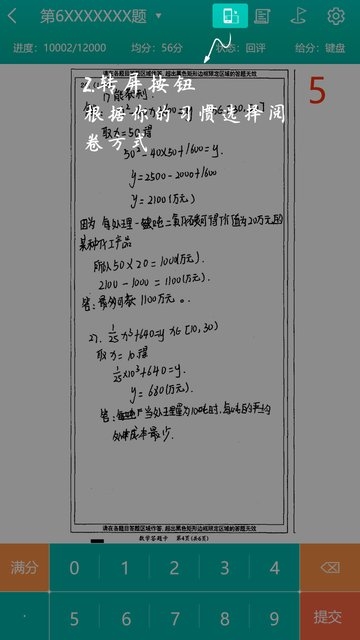 第6XXXXXXX题
进度：10002/12000 均分：56分 状态：回评 给分：键盘
请在各题目答题区域作答，超出黑色矩形边框限定区域的答题无效
5
2.转屏按钮
根据你的习惯选择阅
卷方式
1) 能获利.
取x=50得
50²-40×50+1600=y.
y=2500-2000+1600
y=2100(万元)
因为 每处理一吨二氧化碳可得价值为20万元的
某种化工产品
所以 50×20=1000(万元).
2100-1000=1100(万元).
1100万元。
2). 1/25 x³+640=y x∈[10,30)
取x=10.得
1/25×10³+640=y.
y=680(万元).
答: 当处理量为10吨时,每吨的平均
处理成本最少.
请在各题目答题区域作答，超出黑色矩形边框限定区域的答题无效
数学答题卡 第4页(共6页)
满分 0 1 2 3 4
· 5 6 7 8 9 提交